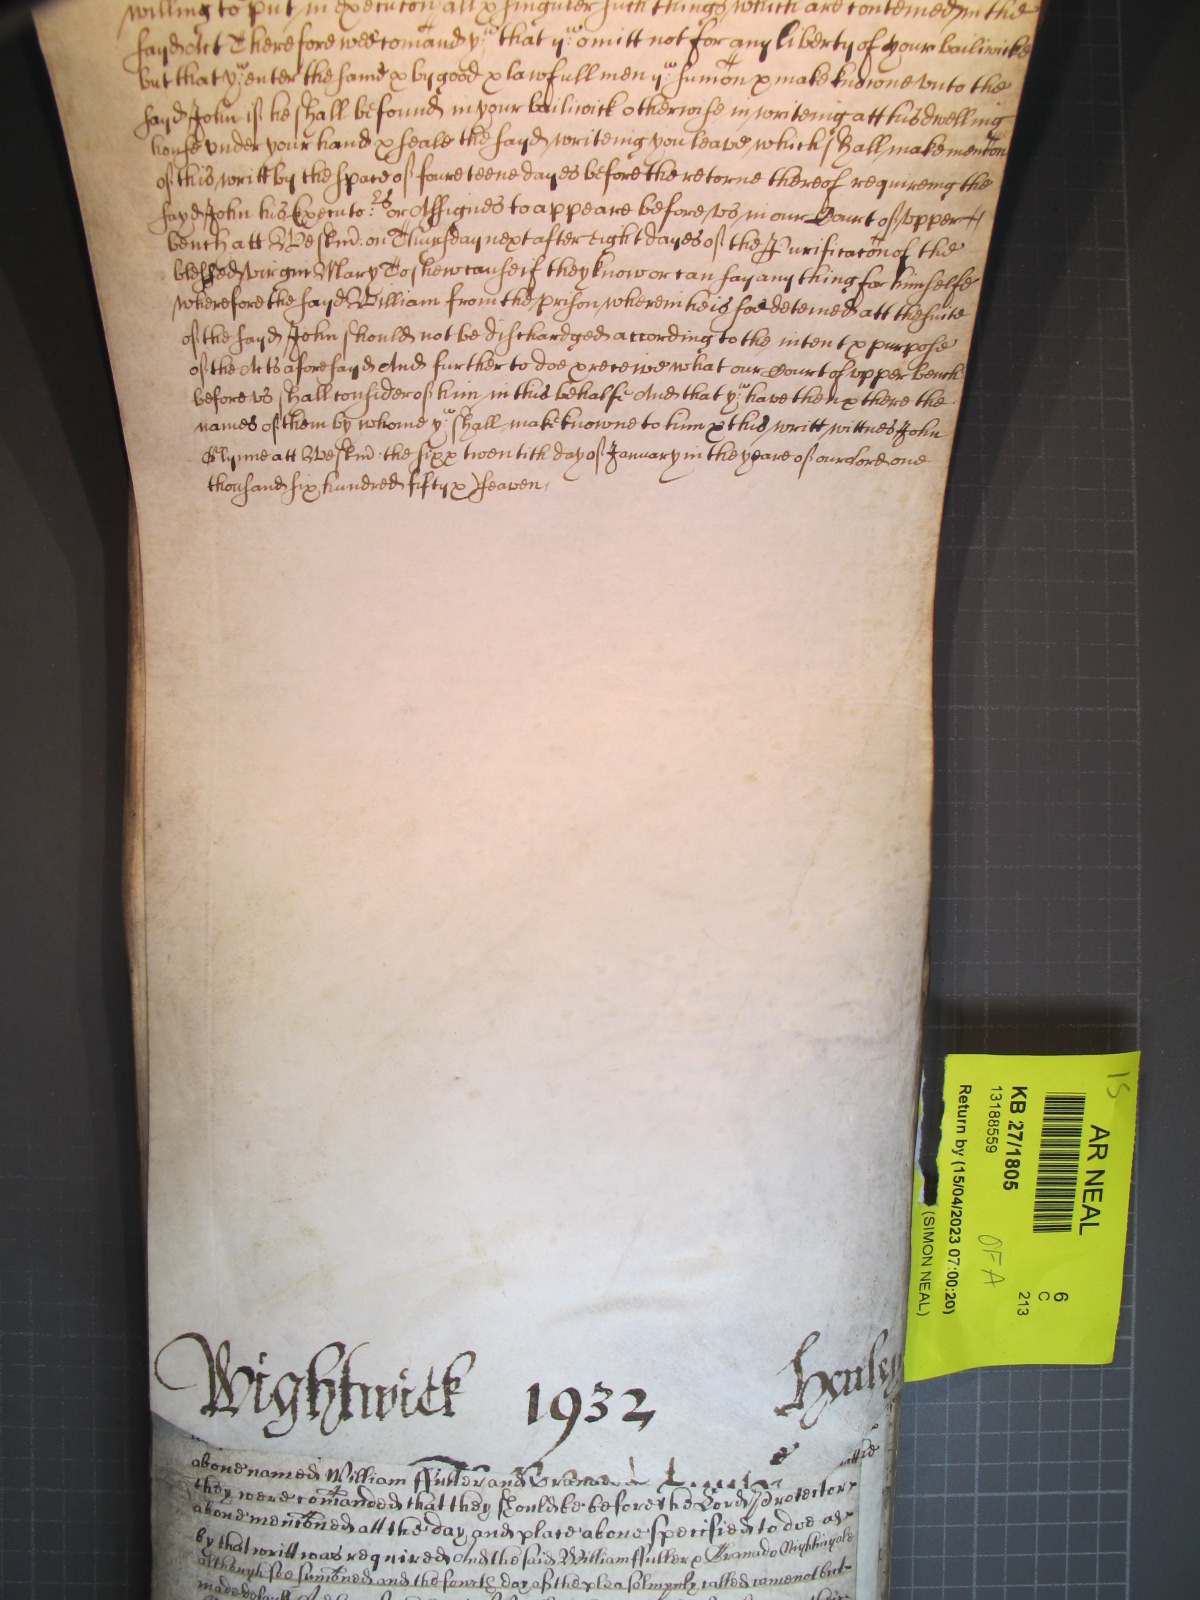 willing to put in execucon all & singuler such things which are conteined in the
sayd Act Therefore wee comand yow that yow omitt not for any liberty of your bailiwicke
but that yow enter the same & by good & lawfull men yow sumon & make knowne vnto the
sayd John if he shall be found in your bailiwick otherwise in writeing att his dwelling
house vnder your hand & seale the sayd writeing you leave which shall make mention
of this writt by the space of foureteene dayes before the retorne thereof requireing the
sayd John his Executors or Assignes to appeare before vs in our Court of vpper
bench att Westmr: on Thursday next after eight dayes of the Purificacon of the
blessed virgin Mary To shew cause if they know or can say any thing for himselfe
wherefore the sayd William from the prison wherein he is soe deteined att the suite
of the sayd John should not be dischardged according to the intent & purpose
of the Acts aforesayd And further to doe & receive what our Court of vpper bench
before vs shall consider of him in this behalfe And that yow have then & there the
names of them by whome yow shall make knowne to him & this writt wittnes John
Glynne att Westmr: the six & twentith day of January in the yeare of our Lord one
thousand six hundred fifty & seaven.
Wightwick 1932 Henley
above named William ffuller and
they were comanded that they should be before the Lord Protector
above mencioned att the day and place above specified to doe as
by that writt was required And the said William ffuller & Granado Nightingale
although soe sumoned and the fourth day of the plea solmnly called came not but
made default
15
AR NEAL
KB 27/1805
13188559
Return by (15/04/2023 07:00:20)
(SIMON NEAL)
OFA
6
C
213